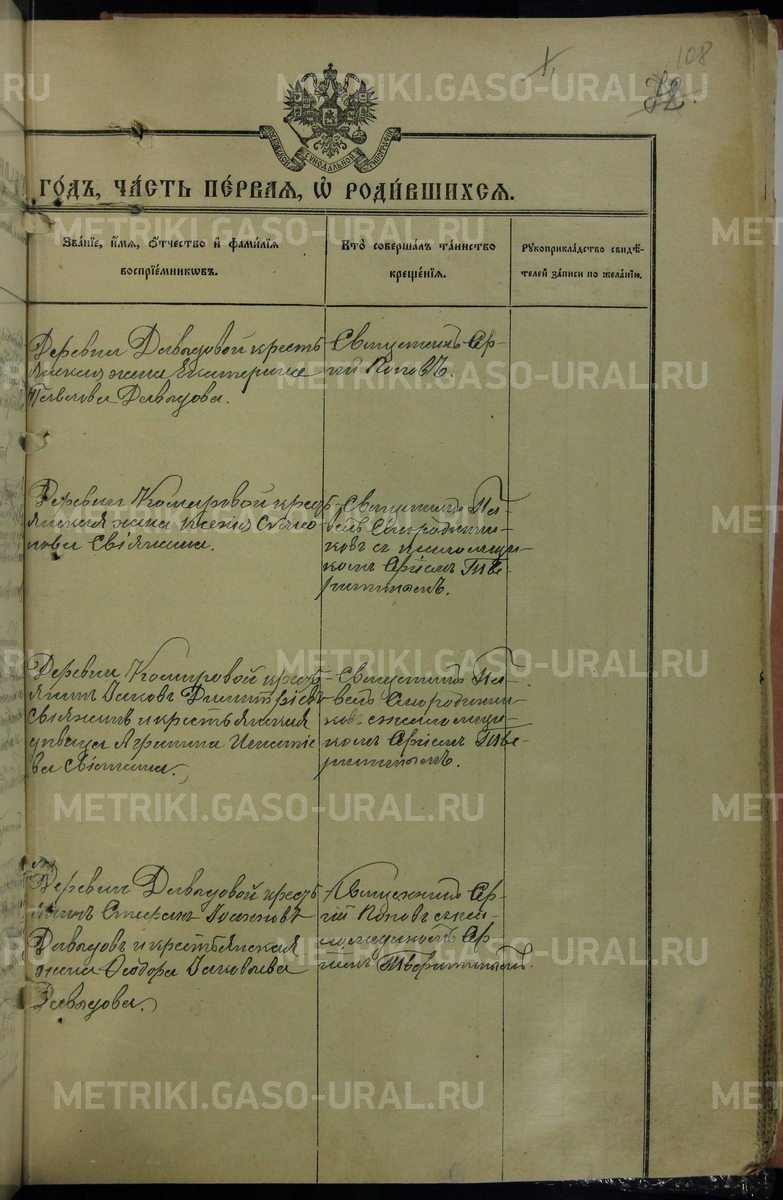 108
72.
МОСКОВСКОЙ СѴНОДАЛЬНОЙ ТИПОГРАФІИ
ГО́ДЪ, ЧА́СТЬ ПЕ́РВАЯ, Ѡ҆ РОДИ́ВШИХСЯ.
Зва́нїе, и҆́мя, ѻ҆́тчество и҆ фами́лїя
воспрїе́мникѡвъ.
Кто̀ соверша́лъ та́инство
креще́нїя.
Рꙋкоприкла́дство свидѣ́-
телей за́писи по жела́нїю.
Деревни Давыдовой кресть-
янская жена Екатерина
Павлова Давыдова.
Священникъ Сер-
гій Поповъ.
Деревни Комаровой крест-
янская жена Ксенія
Свіяжина.
Священникъ Па-
велъ Смородинни-
ковъ съ псаломщи-
комъ Тве-
ритинымъ.
Деревни Комаровой крест-
янинъ Іаковъ Димитріевъ
Свіяжинъ и крестьянская
дѣвица Агрипина Игнатіе-
ва Свіяжина.
Священникъ Па-
велъ Смородинни-
ковъ съ псаломщи-
комъ Тве-
ритинымъ.
Деревни Давыдовой крест-
янинъ Стефанъ Іоанновъ
Давыдовъ и крестьянская
жена Ѳеодора Іаковлева
Давыдова.
Священникъ Сер-
гій Поповъ съ пса-
ломщикомъ
Тверитинымъ.
METRIKI.GASO-URAL.RU